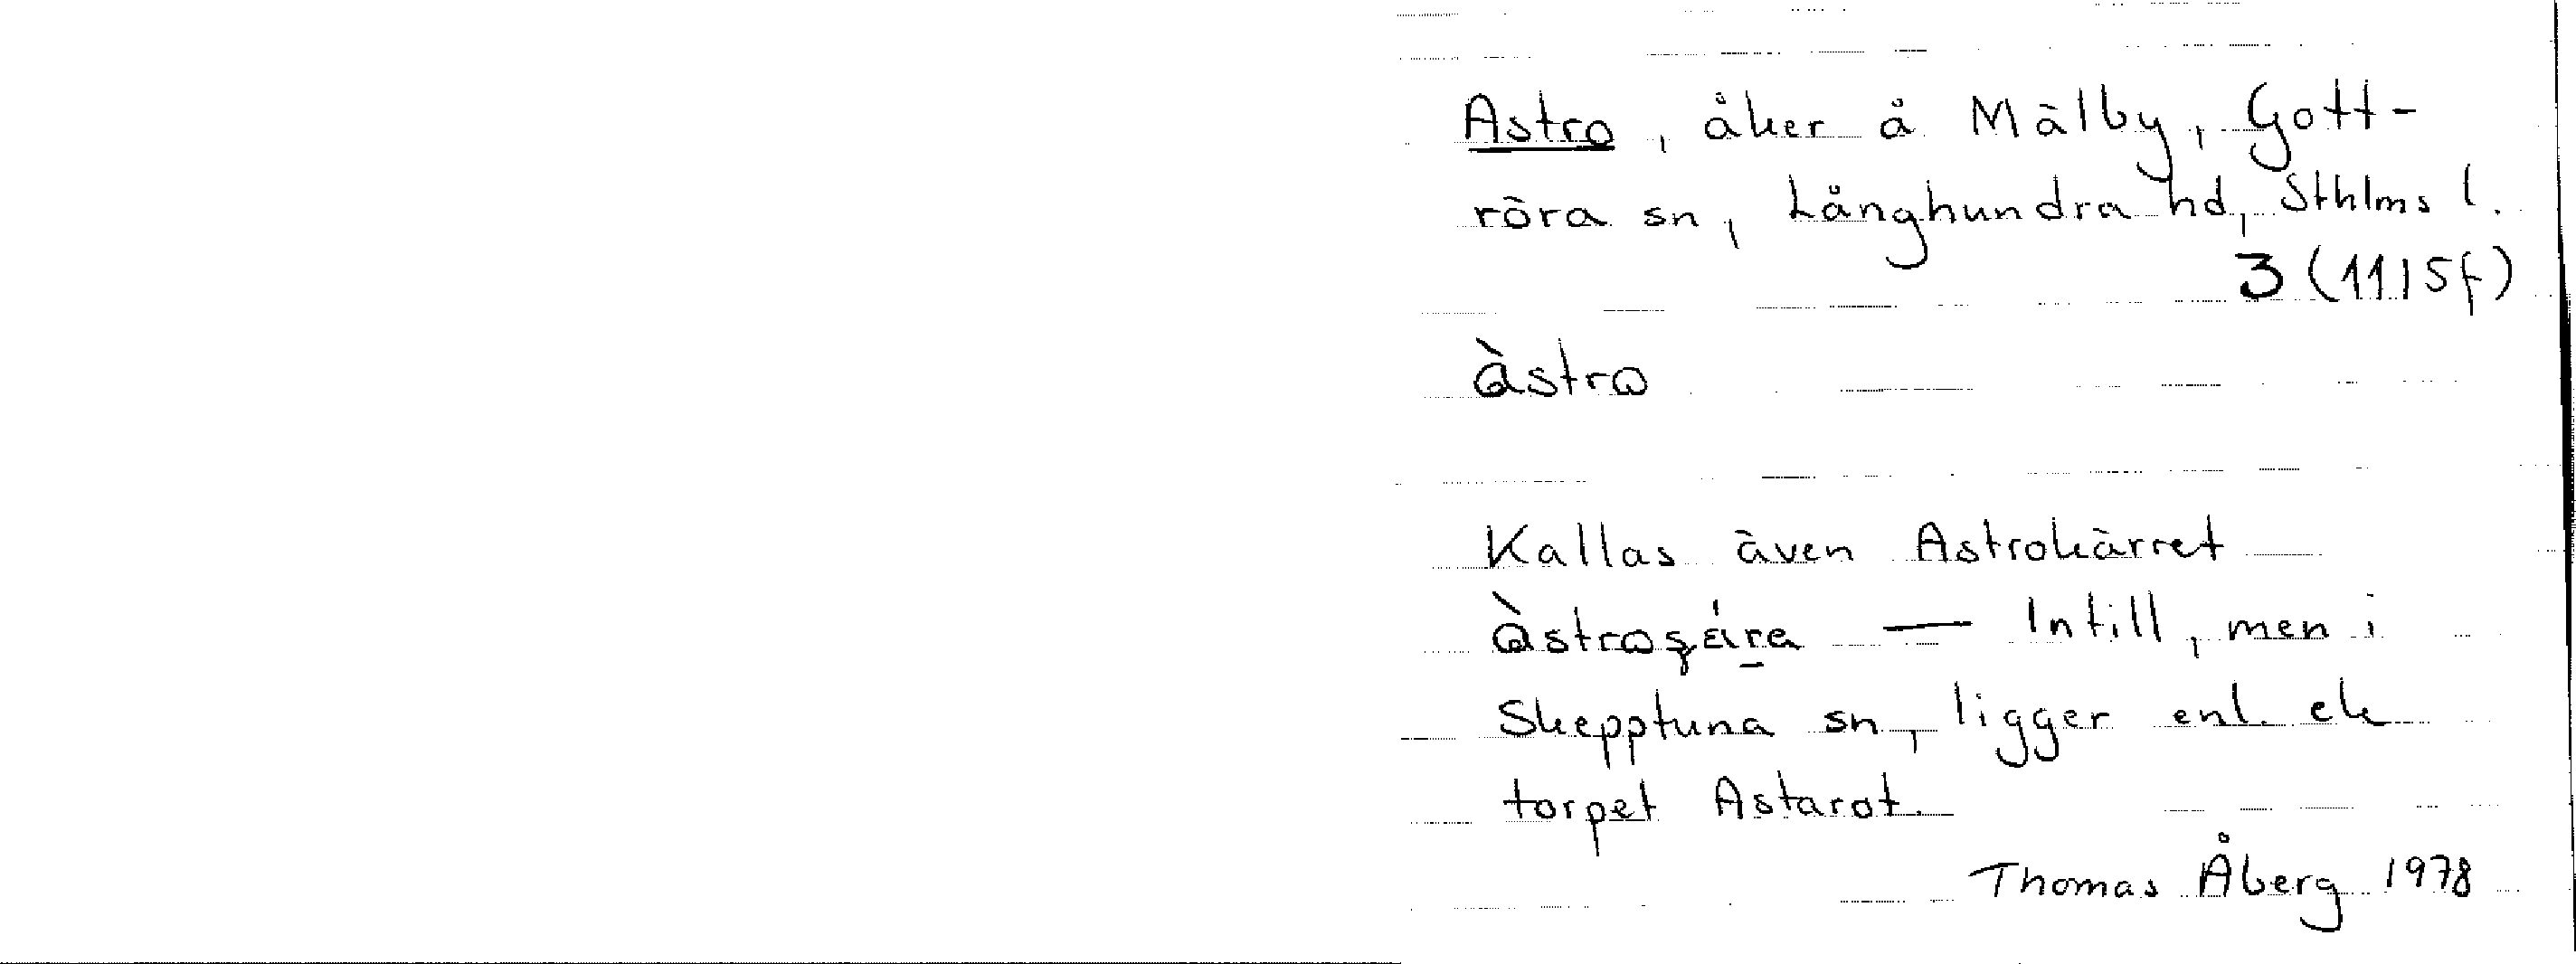 Astro, åker å Mälby, Gott-
röra sn, Långhundra hd, Sthlms l.
3 (11I5f)
àstrω
Kallas även Astrokärret
— Intill, men i
Skepptuna sn, ligger enl. ek
torpet Astarot.
Thomas Åberg 1978